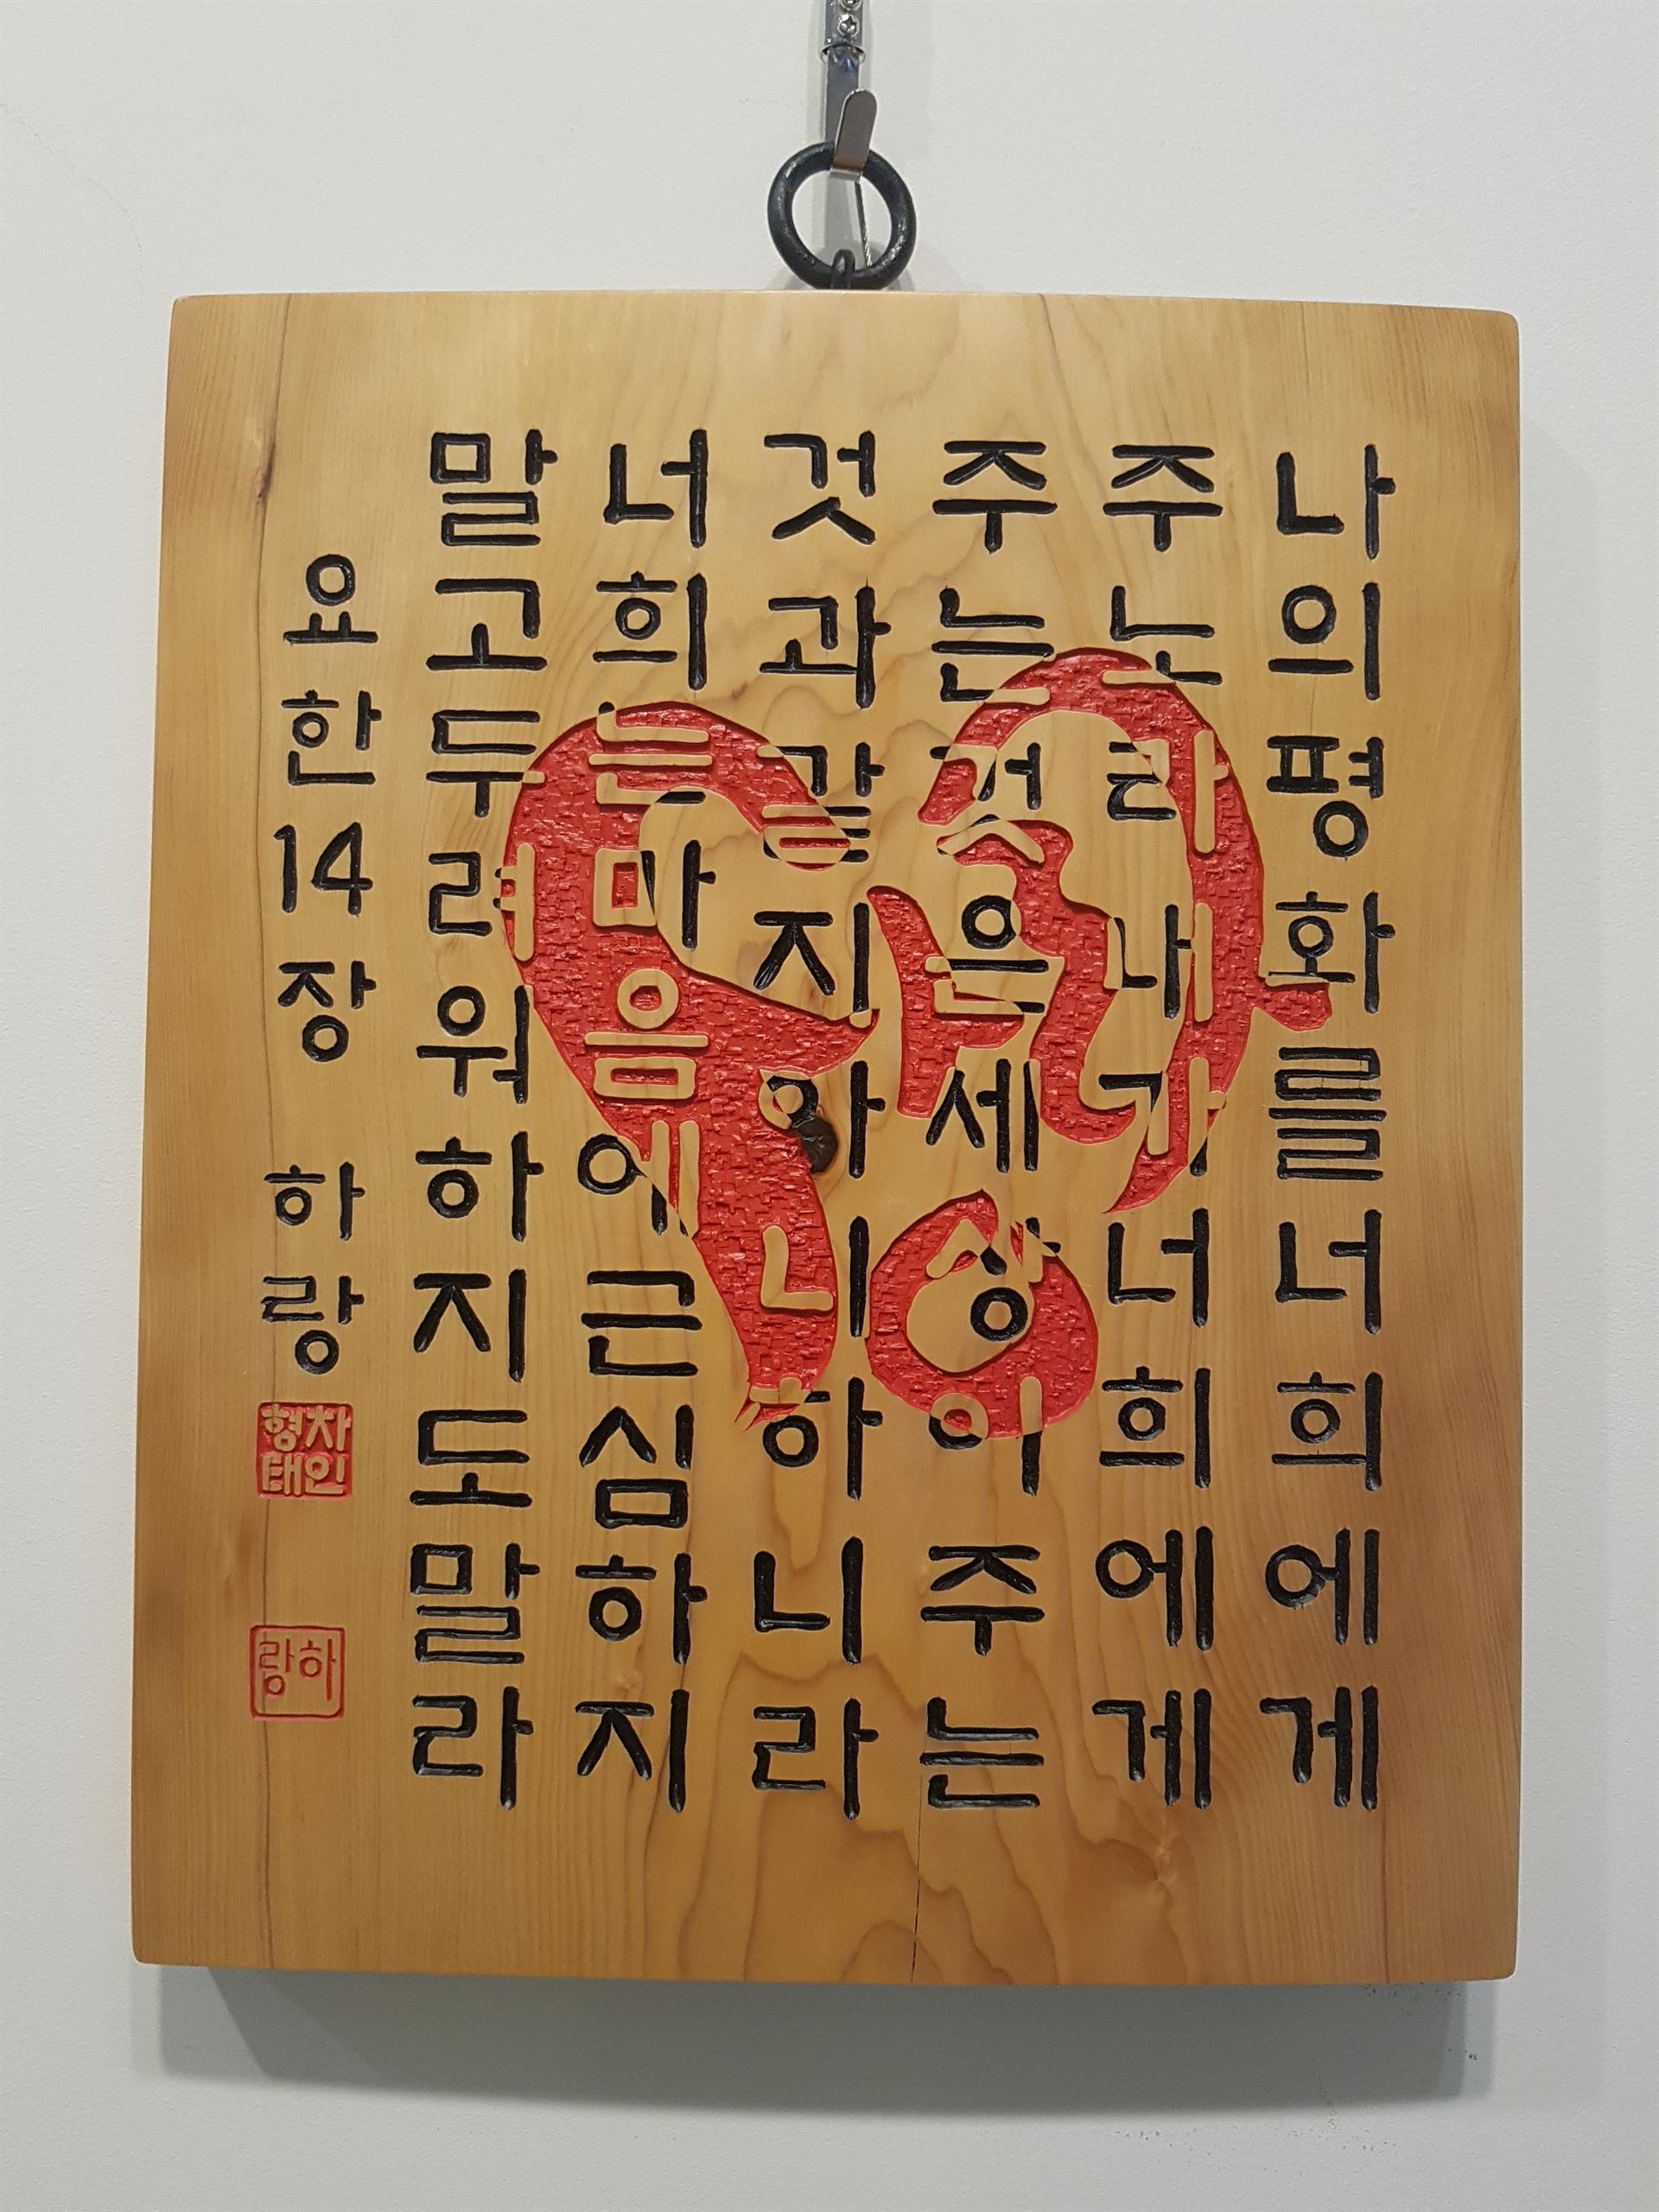 나의평화를너희에게
주노라내가너희에게
주는것은세상이주는
것과같지아니하니라
너희는마음에근심하지
말고두려워하지도말라
요한14장 하랑
차형태인
하랑